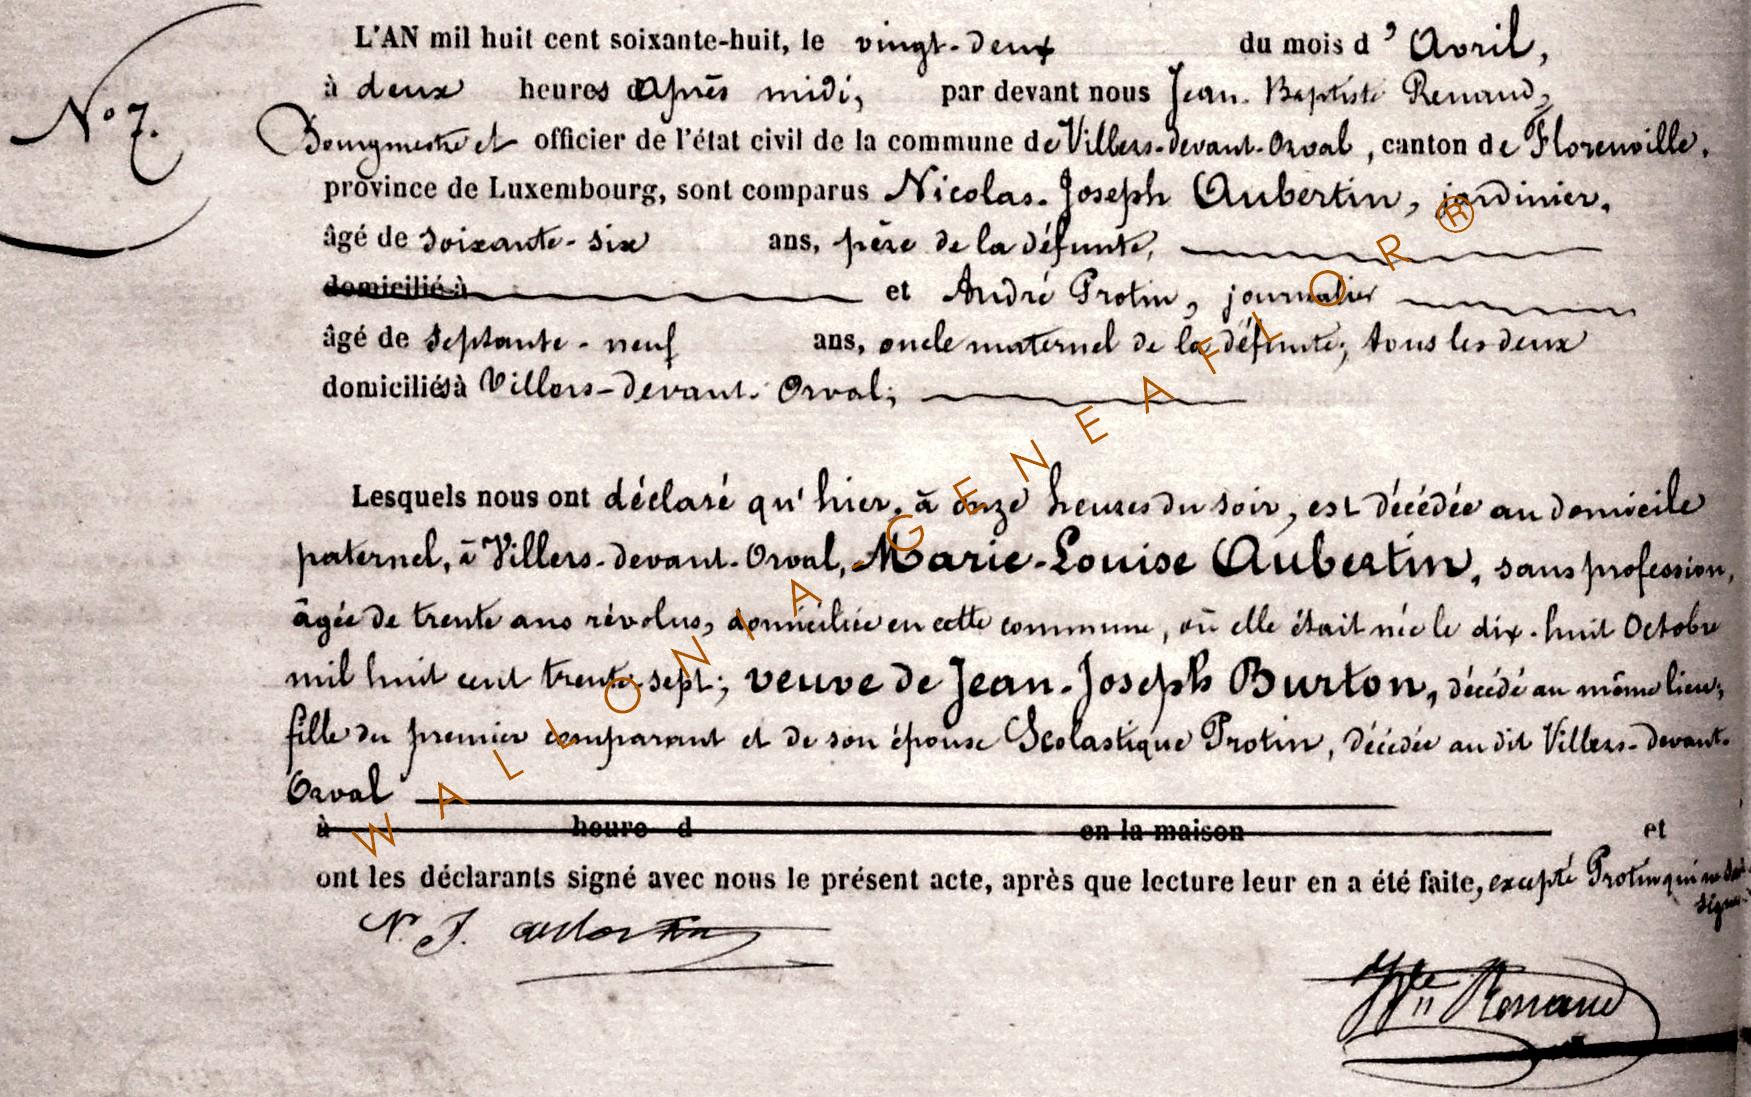 L'AN mil huit cent soixante-huit, le vingt-deux du mois d'Avril,
à deux heures après midi, par devant nous Jean-Baptiste Renaud,
N° 7.
Bourgmestre et officier de l'état civil de la commune de Villers-devant-Orval, canton de Florenville,
province de Luxembourg, sont comparus Nicolas-Joseph Aubertin, jardinier,
âgé de soixante-six ans, père de la défunte,
domicilié à et André Protin, journalier
âgé de septante-neuf ans, oncle maternel de la défunte; tous les deux
domiciliés à Villers-devant-Orval;
Lesquels nous ont déclaré qu'hier, à onze heures du soir, est décédée au domicile
paternel, à Villers-devant-Orval, Marie-Louise Aubertin, sans profession,
âgée de trente ans révolus, domiciliée en cette commune, où elle était née le dix-huit Octobre
mil huit cent trente-sept; veuve de Jean-Joseph Burton, décédé au même lieu;
fille du premier comparant et de son épouse Scolastique Protin, décédée au dit Villers-devant-
Orval
à heure d en la maison et
ont les déclarants signé avec nous le présent acte, après que lecture leur en a été faite, excepté Protin qui ne sait
signer.
N. J. aubertin
JBte Renaud
WALLONIA-GENEAFLOR®